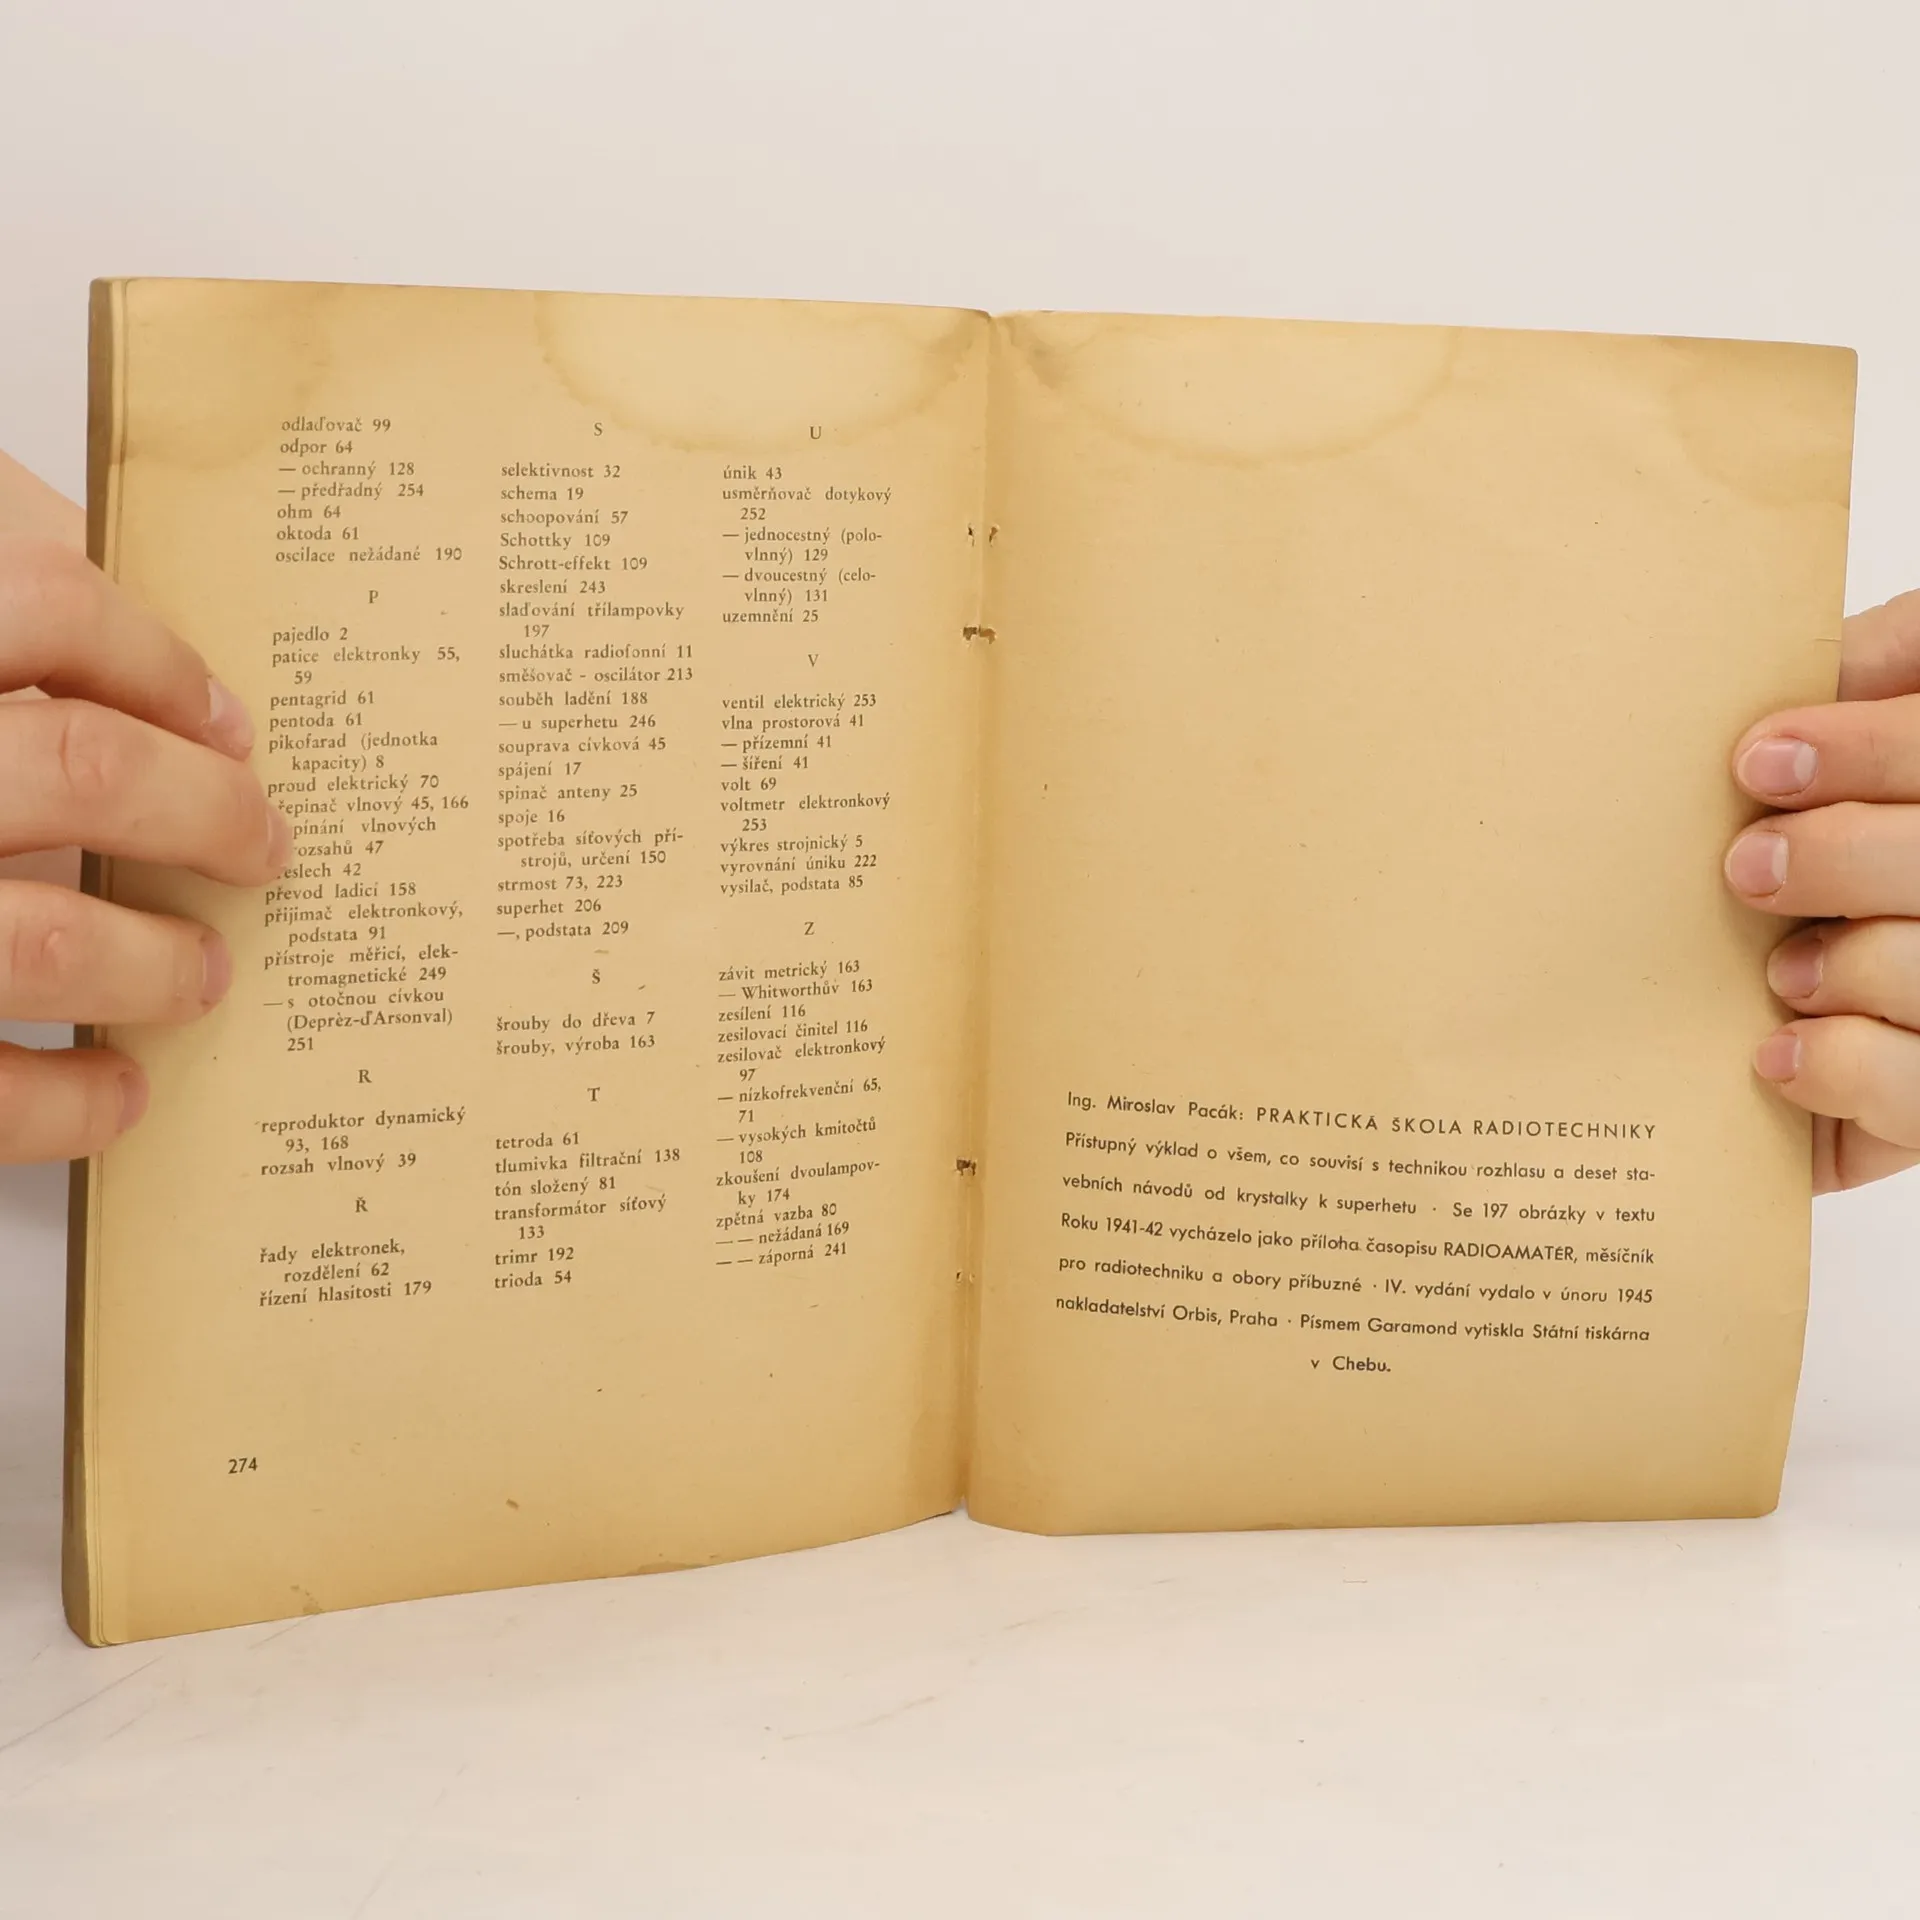 odlaďovač 99
odpor 64
— ochranný 128
— předřadný 254
ohm 64
oktoda 61
oscilace nežádané 190
P
pajedlo 2
patice elektronky 55,
59
pentagrid 61
pentoda 61
pikofarad (jednotka
kapacity) 8
proud elektrický 70
vlnový 45, 166
vlnových
47
42
převod ladicí 158
přijimač elektronkový,
podstata 91
přístroje měřicí, elek-
tromagnetické 249
— s otočnou cívkou
(Deprèz-d'Arsonval)
251
R
reproduktor dynamický
93, 168
rozsah vlnový 39
Ř
řady elektronek,
rozdělení 62
řízení hlasitosti 179
274
S
selektivnost 32
schema 19
schoopování 57
Schottky 109
Schrott-effekt 109
skreslení 243
slaďování třílampovky
197
sluchátka radiofonní 11
směšovač - oscilátor 213
souběh ladění 188
— u superhetu 246
souprava cívková 45
spájení 17
spinač anteny 25
spoje 16
spotřeba síťových pří-
strojů, určení 150
strmost 73, 223
superhet 206
—, podstata 209
Š
šrouby do dřeva 7
šrouby, výroba 163
T
tetroda 61
tlumivka filtrační 138
tón složený 81
transformátor síťový
133
trimr 192
trioda 54
U
únik 43
usměrňovač dotykový
252
— jednocestný (polo-
vlnný) 129
— dvoucestný (celo-
vlnný) 131
uzemnění 25
V
ventil elektrický 253
vlna prostorová 41
— přízemní 41
— šíření 41
volt 69
voltmetr elektronkový
253
výkres strojnický 5
vyrovnání úniku 222
vysilač, podstata 85
Z
závit metrický 163
— Whitworthův 163
zesílení 116
zesilovací činitel 116
zesilovač elektronkový
97
— nízkofrekvenční 65,
71
— vysokých kmitočtů
108
zkoušení dvoulampov-
ky 174
zpětná vazba 80
— — nežádaná 169
— — záporná 241
Ing. Miroslav Pacák: PRAKTICKÁ ŠKOLA RADIOTECHNIKY
Přístupný výklad o všem, co souvisí s technikou rozhlasu a deset sta-
vebních návodů od krystalky k superhetu · Se 197 obrázky v textu
Roku 1941-42 vycházelo jako příloha časopisu RADIOAMATÉR, měsíčník
pro radiotechniku a obory příbuzné · IV. vydání vydalo v únoru 1945
nakladatelství Orbis, Praha · Písmem Garamond vytiskla Státní tiskárna
v Chebu.